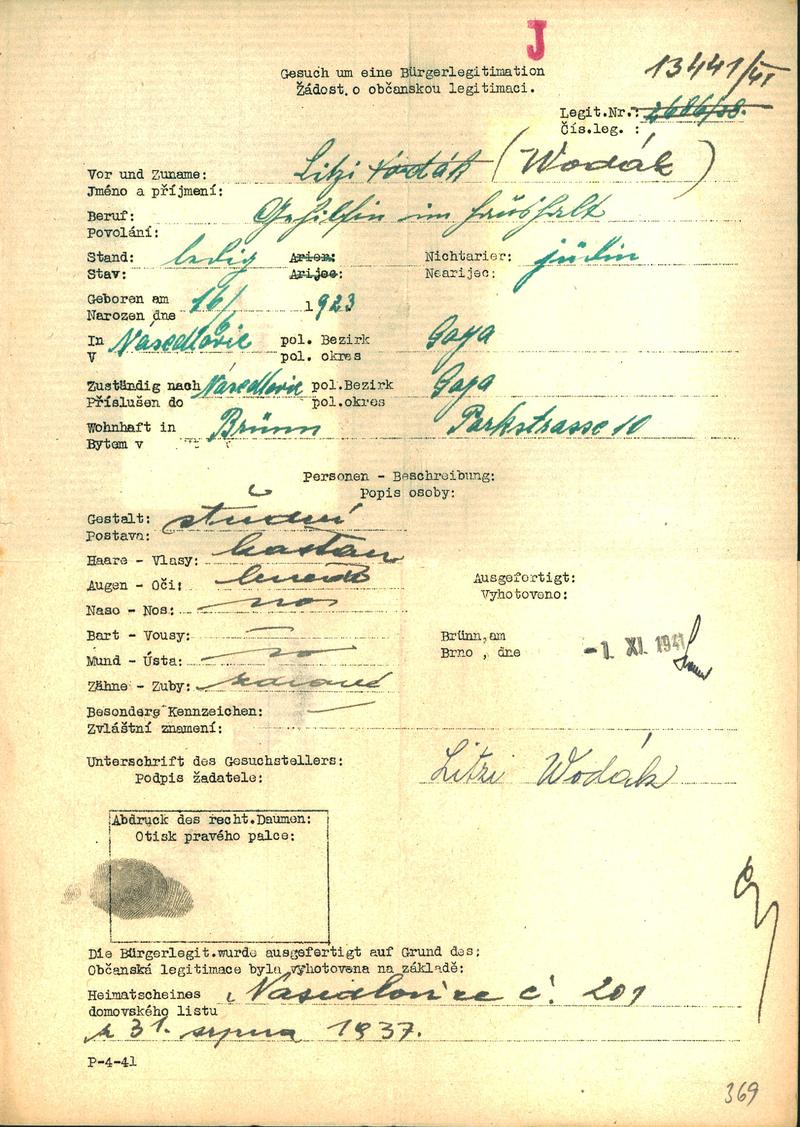 J
13441/41
Gesuch um eine Bürgerlegitimation
Žádost.o občanskou legitimaci.
Legit.Nr.: 2686/38.
Čís.leg. :
Vor und Zuname: Litzi Vodák (Wodák)
Jméno a příjmení:
Beruf: Gehilfin im Haushalt
Povolání:
Stand: ledig Arier: Nichtarier: jüdin
Stav: Arijec: Nearijec:
Geboren am 16/ 1923
Narozen dne
In Násedlovic pol. Bezirk Gaya
V pol. okres
Zuständig nach Násedlovic pol.Bezirk Gaya
Příslušen do pol.okres
Wohnhaft in Brünn Parkstrasse 10
Bytem v
Personen - Beschreibung:
Popis osoby:
Gestalt: střední
Postava:
Haare - Vlasy: kaštan
Augen - Oči:
Ausgefortigt:
Vyhotoveno:
Naso - Nos:
Bart - Vousy:
Brünn, am
Brno , dne -1. XI. 1941
Mund - Ústa:
Zähne - Zuby: zdravé
Besondere Kennzeichen:
Zvláštní znamení:
Unterschrift des Gesuchstellers: Litzi Wodák
Podpis žadatele:
Abdruck des recht.Daumen:
Otisk pravého palce:
Die Bürgerlegit.wurde ausgefertigt auf Grund des:
Občanská legitimace byla vyhotovena na základě:
Heimatscheines Nasedlovice č. 201
domovského listu
z 31. srpna 1937.
P-4-41
369